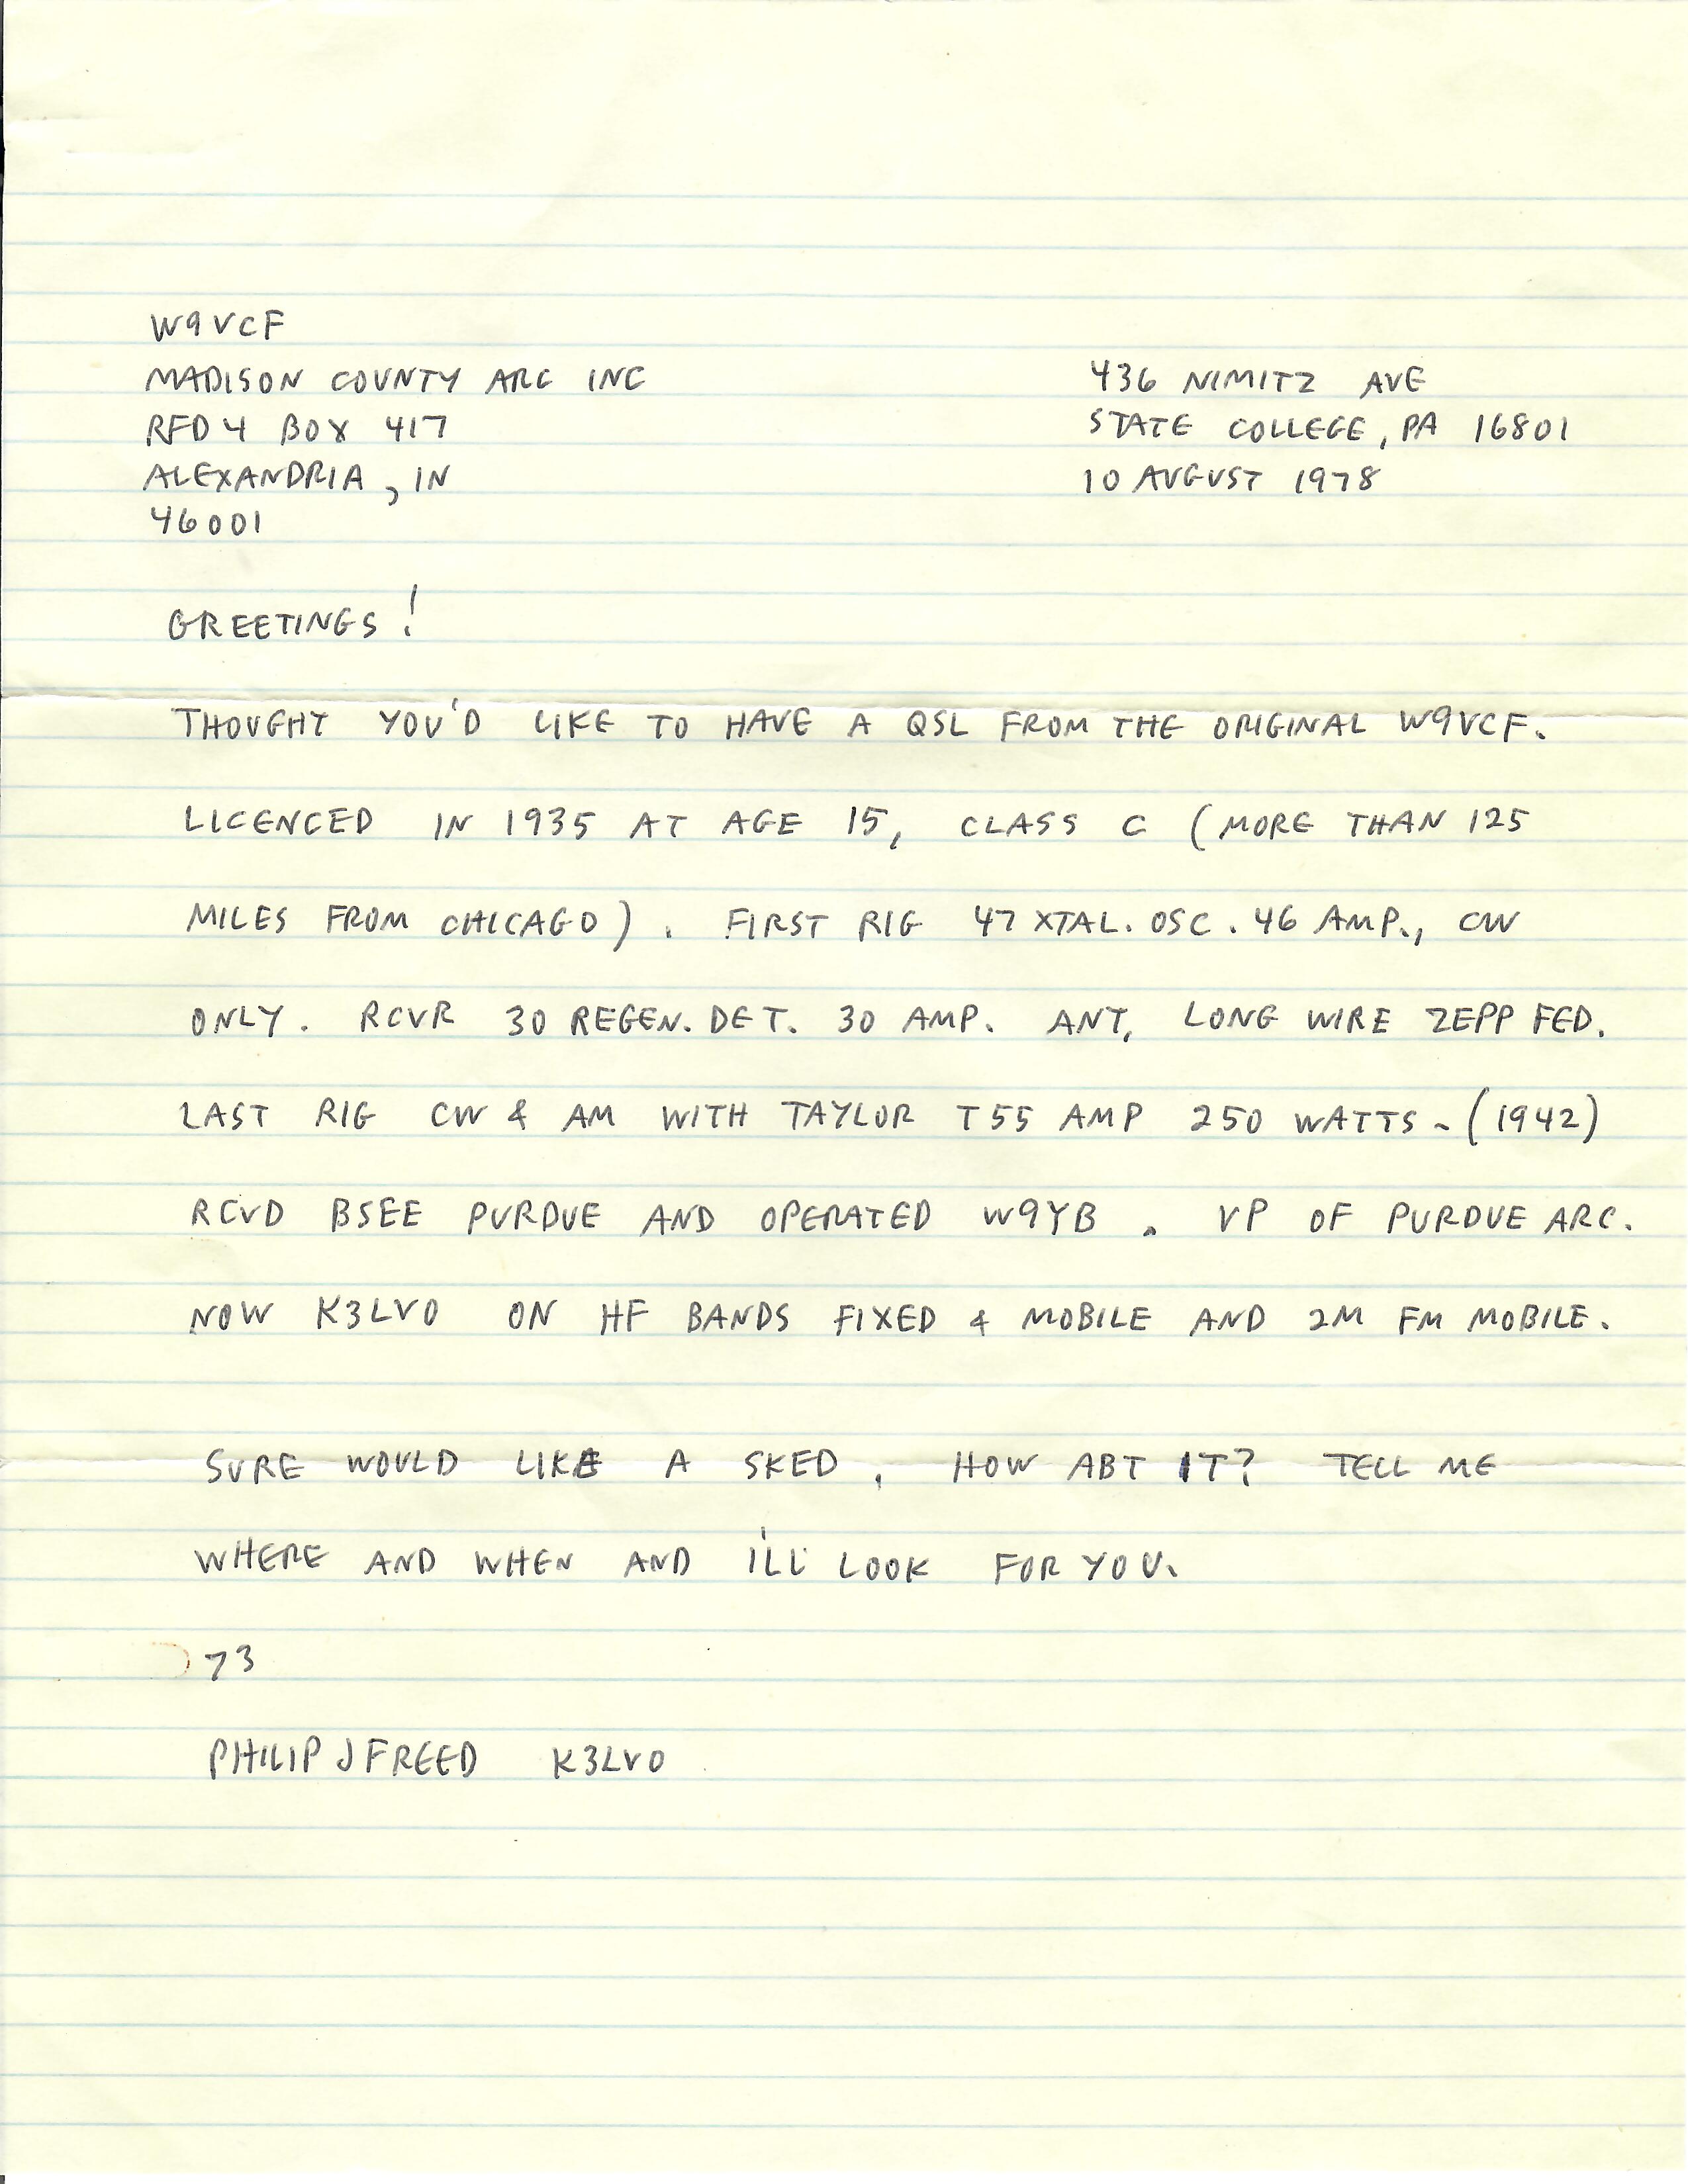 W9VCF
MADISON COUNTY ARC INC
RFD 4 BOX 417
ALEXANDRIA, IN
46001
436 NIMITZ AVE
STATE COLLEGE, PA 16801
10 AUGUST 1978
GREETINGS!
THOUGHT YOU'D LIKE TO HAVE A QSL FROM THE ORIGINAL W9VCF.
LICENCED IN 1935 AT AGE 15, CLASS C (MORE THAN 125
MILES FROM CHICAGO). FIRST RIG 47 XTAL. OSC. 46 AMP., CW
ONLY. RCVR 30 REGEN. DET. 30 AMP. ANT, LONG WIRE ZEPP FED.
LAST RIG CW & AM WITH TAYLOR T55 AMP 250 WATTS - (1942)
RCVD BSEE PURDUE AND OPERATED W9YB. VP OF PURDUE ARC.
NOW K3LVO ON HF BANDS FIXED & MOBILE AND 2M FM MOBILE.
SURE WOULD LIKE A SKED. HOW ABT IT? TELL ME
WHERE AND WHEN AND I'LL LOOK FOR YOU.
73
PHILIP J FREED K3LVO